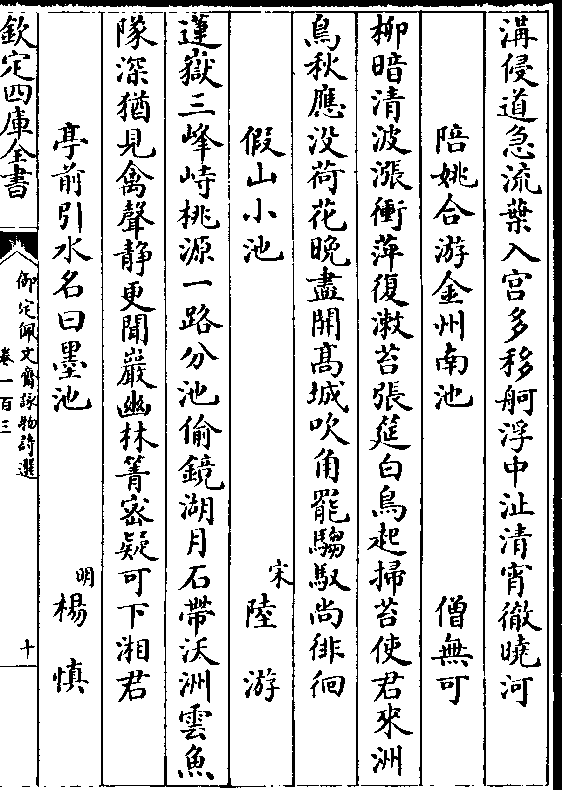 溝侵道急流葉入宫多移舸浮中沚清宵徹曉河
陪姚合游金州南池　僧無可
柳暗清波漲衝萍復漱苔張筵白鳥起掃苔使君來洲
鳥秋應没荷花晚盡開高城吹角罷騶馭尚徘徊
假山小池　宋陸游
蓮嶽三峰峙桃源一路分池偷鏡湖月石帶沃洲雲魚
隊深猶見禽聲靜更聞巖幽林箐宻疑可下湘君
亭前引水名曰墨池　明楊慎
欽定四庫全書　御定佩文齋詠物詩選　卷一百三　十